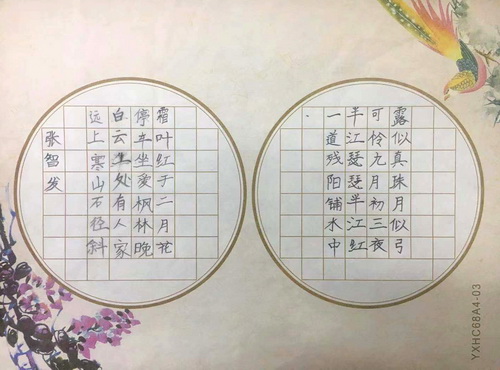 张智发
远上寒山石径斜
白云生处有人家
停车坐爱枫林晚
霜叶红于二月花
一道残阳铺水中
半江瑟瑟半江红
可怜九月初三夜
露似真珠月似弓
YXHC68A4-03